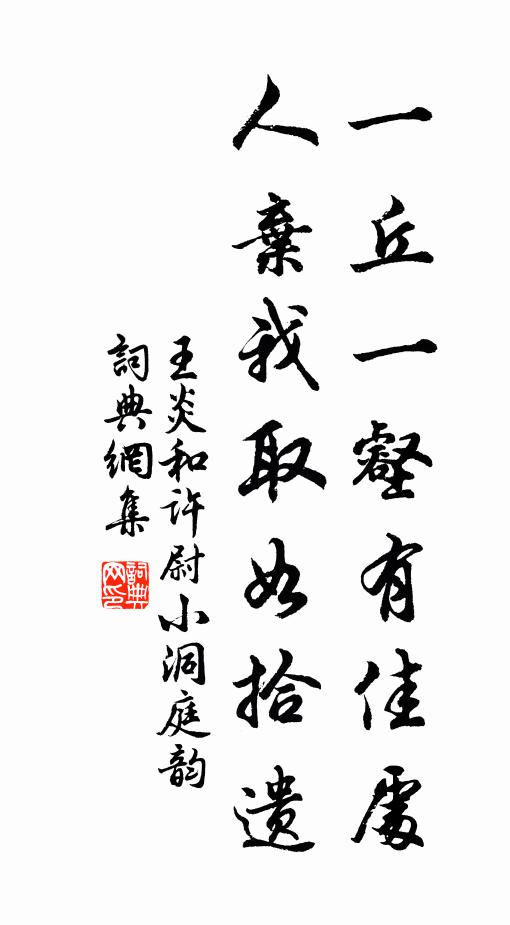 一丘一壑有佳處
人棄我取如拾遺
王炎和許尉小洞庭韵
詞典網集
詞典网印